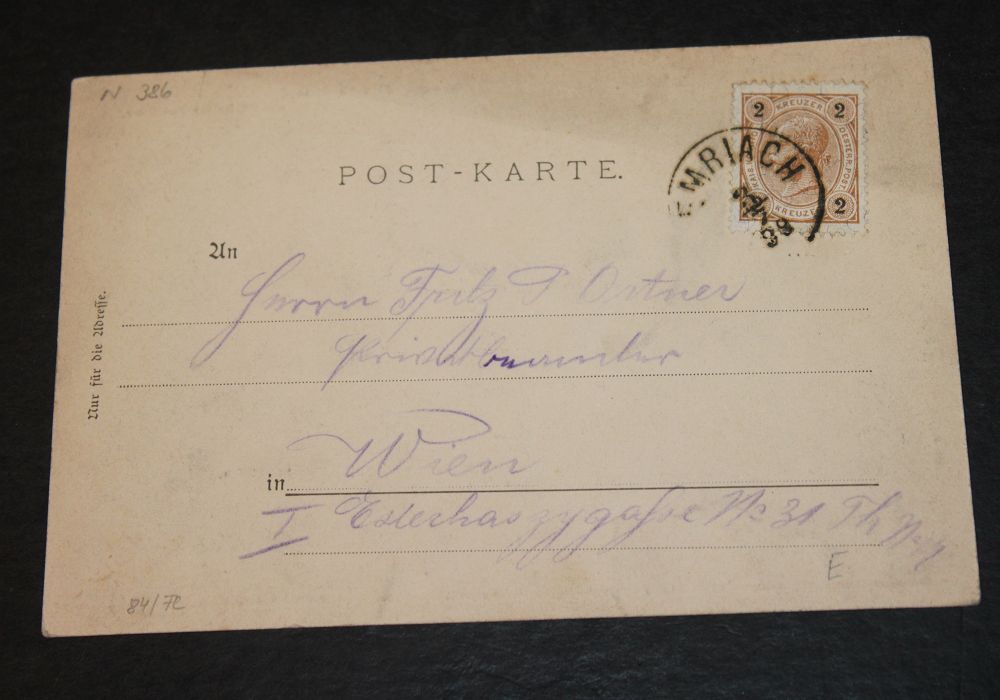 N 386
2 KREUZER 2
OESTERR. POST.
KAIS.
2 KREUZER 2
EMRIACH
99
POST-KARTE.
An
Herrn Fritz P Ortner
Privatbeamter
Nur für die Adresse.
in Wien
I Esterhazygasse No 31 Th
E
84/7C